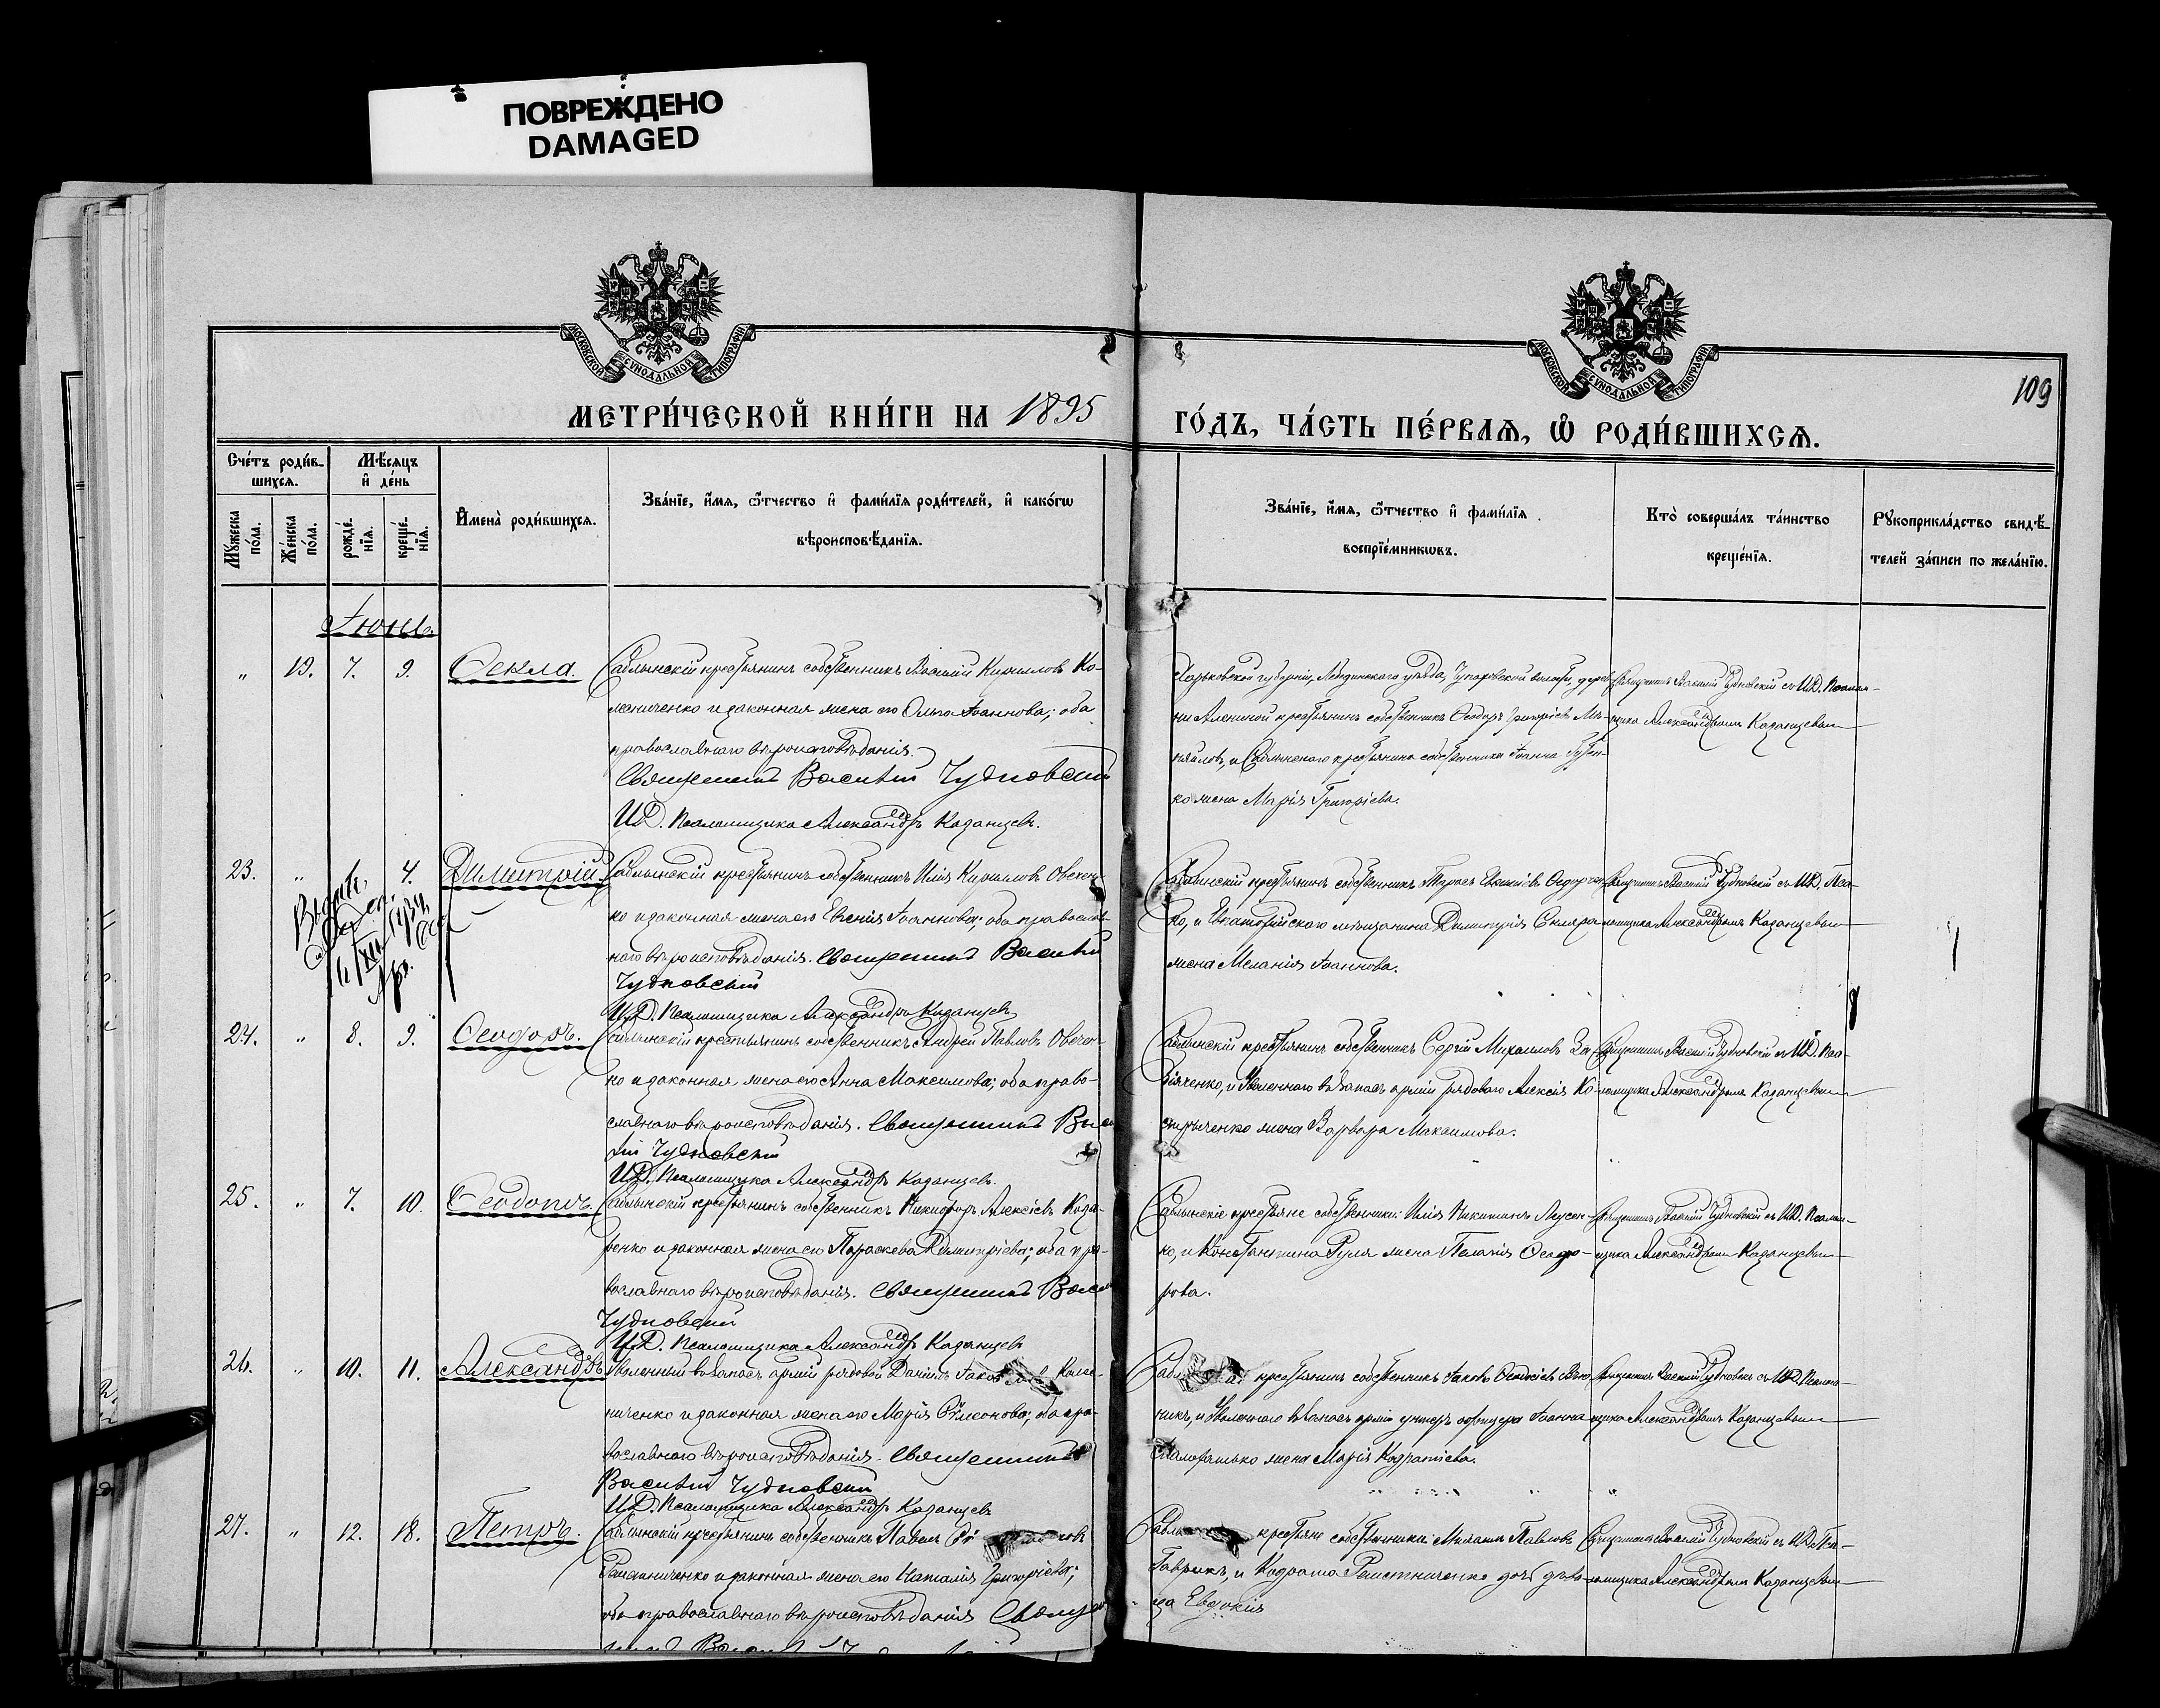 ПОВРЕЖДЕНО
DAMAGED
МОСКОВСКОЙ СѴНОДАЛЬНОЙ ТИПОГРАФІИ
МОСКОВСКОЙ СѴНОДАЛЬНОЙ ТИПОГРАФІИ
109
МЕТРИ́ЧЕСКОЙ КНИ́ГИ НА 1895
ГО́ДЪ, ЧА́СТЬ ПЕ́РВАЯ, Ѡ҆ РОДИ́ВШИХСЯ.
Сче́тъ роди́в-
шихся.
Мѣ́сяцъ
и҆ де́нь
Мꙋ́жеска по́ла.
Же́нска по́ла.
рожде́нїѧ.
креще́нїѧ.
И҆мена̀ роди́вшихся.
Зва́нїе, и҆́мѧ, ѻ҆́тчество и҆ фами́лїѧ роди́телей, и҆ како́гѡ
вѣроисповѣ́данїѧ.
Зва́нїе, и҆́мѧ, ѻ҆́тчество и҆ фами́лїѧ
воспрїе́мникѡвъ.
Кто̀ соверша́лъ та́инство
креще́нїѧ.
Рꙋкоприкла́дство свидѣ́-
телей за́писи по жела́нїю.
Іюнь.
" 19. 7. 9. Ѳекла.
Саблынскій крестьянинъ собственникъ Василій Кириловъ Ко-
лениченко и законная жена его Ольга Іоаннова; оба
православнаго вѣроисповѣданія.
Священникъ Василій Чудновскій
И.Д. Псаломщика Александръ Казанцевъ.
Харьковской губерніи, Лебединскаго уѣзда, волости, дерев-
ни крестьянинъ собственникъ Ѳеодоръ Григоріевъ
и Саблынскаго крестьянина собственника Іоанна
жена Марія Григоріева.
Священникъ Василій Чудновскій съ И.Д. Псалом-
щика Александромъ Казанцевымъ
23. " 4. Димитрій.
Саблынскій крестьянинъ собственникъ Илія Кириловъ Овечен-
ко и законная жена его Евгенія Іоаннова; оба православ-
наго вѣроисповѣданія. Священникъ Василій
Чудновскій
И.Д. Псаломщика Александръ Казанцевъ
Саблынскій крестьянинъ собственникъ Тарасъ Ѳедорчен-
ко, и Евпаторійскаго мѣщанина Димитрія Скляра
жена Меланія Іоаннова.
Священникъ Василій Чудновскій съ И.Д. Пса-
ломщика Александромъ Казанцевымъ
24. " 8. 9. Ѳеодоръ.
Саблынскій крестьянинъ собственникъ Андрей Павловъ Овечен-
ко и законная жена его Анна Максимова; оба право-
славнаго вѣроисповѣданія. Священникъ Васи-
лій Чудновскій
И.Д. Псаломщика Александръ Казанцевъ.
Саблынскій крестьянинъ собственникъ Сергій Михаиловъ
и уволеннаго въ запасъ арміи рядоваго Алексія Ко-
стырченко жена Варвара Максимова.
Священникъ Василій Чудновскій съ И.Д. Пса-
ломщика Александромъ Казанцевымъ
25. " 7. 10. Ѳеодотъ.
Саблынскій крестьянинъ собственникъ Никифоръ Алексіевъ Каза-
ренко и законная жена его Параскева Димитріева; оба пра-
вославнаго вѣроисповѣданія. Священникъ Васи
Чудновскій
И.Д. Псаломщика Александръ Казанцевъ
Саблынскіе крестьяне собственники: Илія Никитинъ Лусен-
ко, и Константина Руля жена Пелагія Ѳеодо-
рова.
Священникъ Василій Чудновскій съ И.Д. Псалом-
щика Александромъ Казанцевымъ
26. " 10. 11. Александръ
Уволенный въ запасъ арміи рядовой Даніилъ Коле-
ниченко и законная жена его Марія Сѵмеонова; оба пра-
вославнаго вѣроисповѣданія. Священникъ
Василій Чудновскій
И.Д. Псаломщика Александръ Казанцевъ
крестьянинъ собственникъ Іаковъ
и уволеннаго въ запасъ арміи унтеръ офицера Іоанна
жена Марія Кодратіева.
Священникъ Василій Чудновскій съ И.Д. Псалом-
щика Александромъ Казанцевымъ
27. " 12. 18. Петръ.
Саблынскій крестьянинъ собственникъ Павелъ
и законная жена его Наталія Григоріева;
оба православнаго вѣроисповѣданія Священ
крестьяне собственники: Михаилъ Павловъ
Гаврикъ, и Кодрата дочь дѣви-
ца Евдокія
Священникъ Василій Чудновскій съ И.Д. Пса-
ломщика Александромъ Казанцевымъ